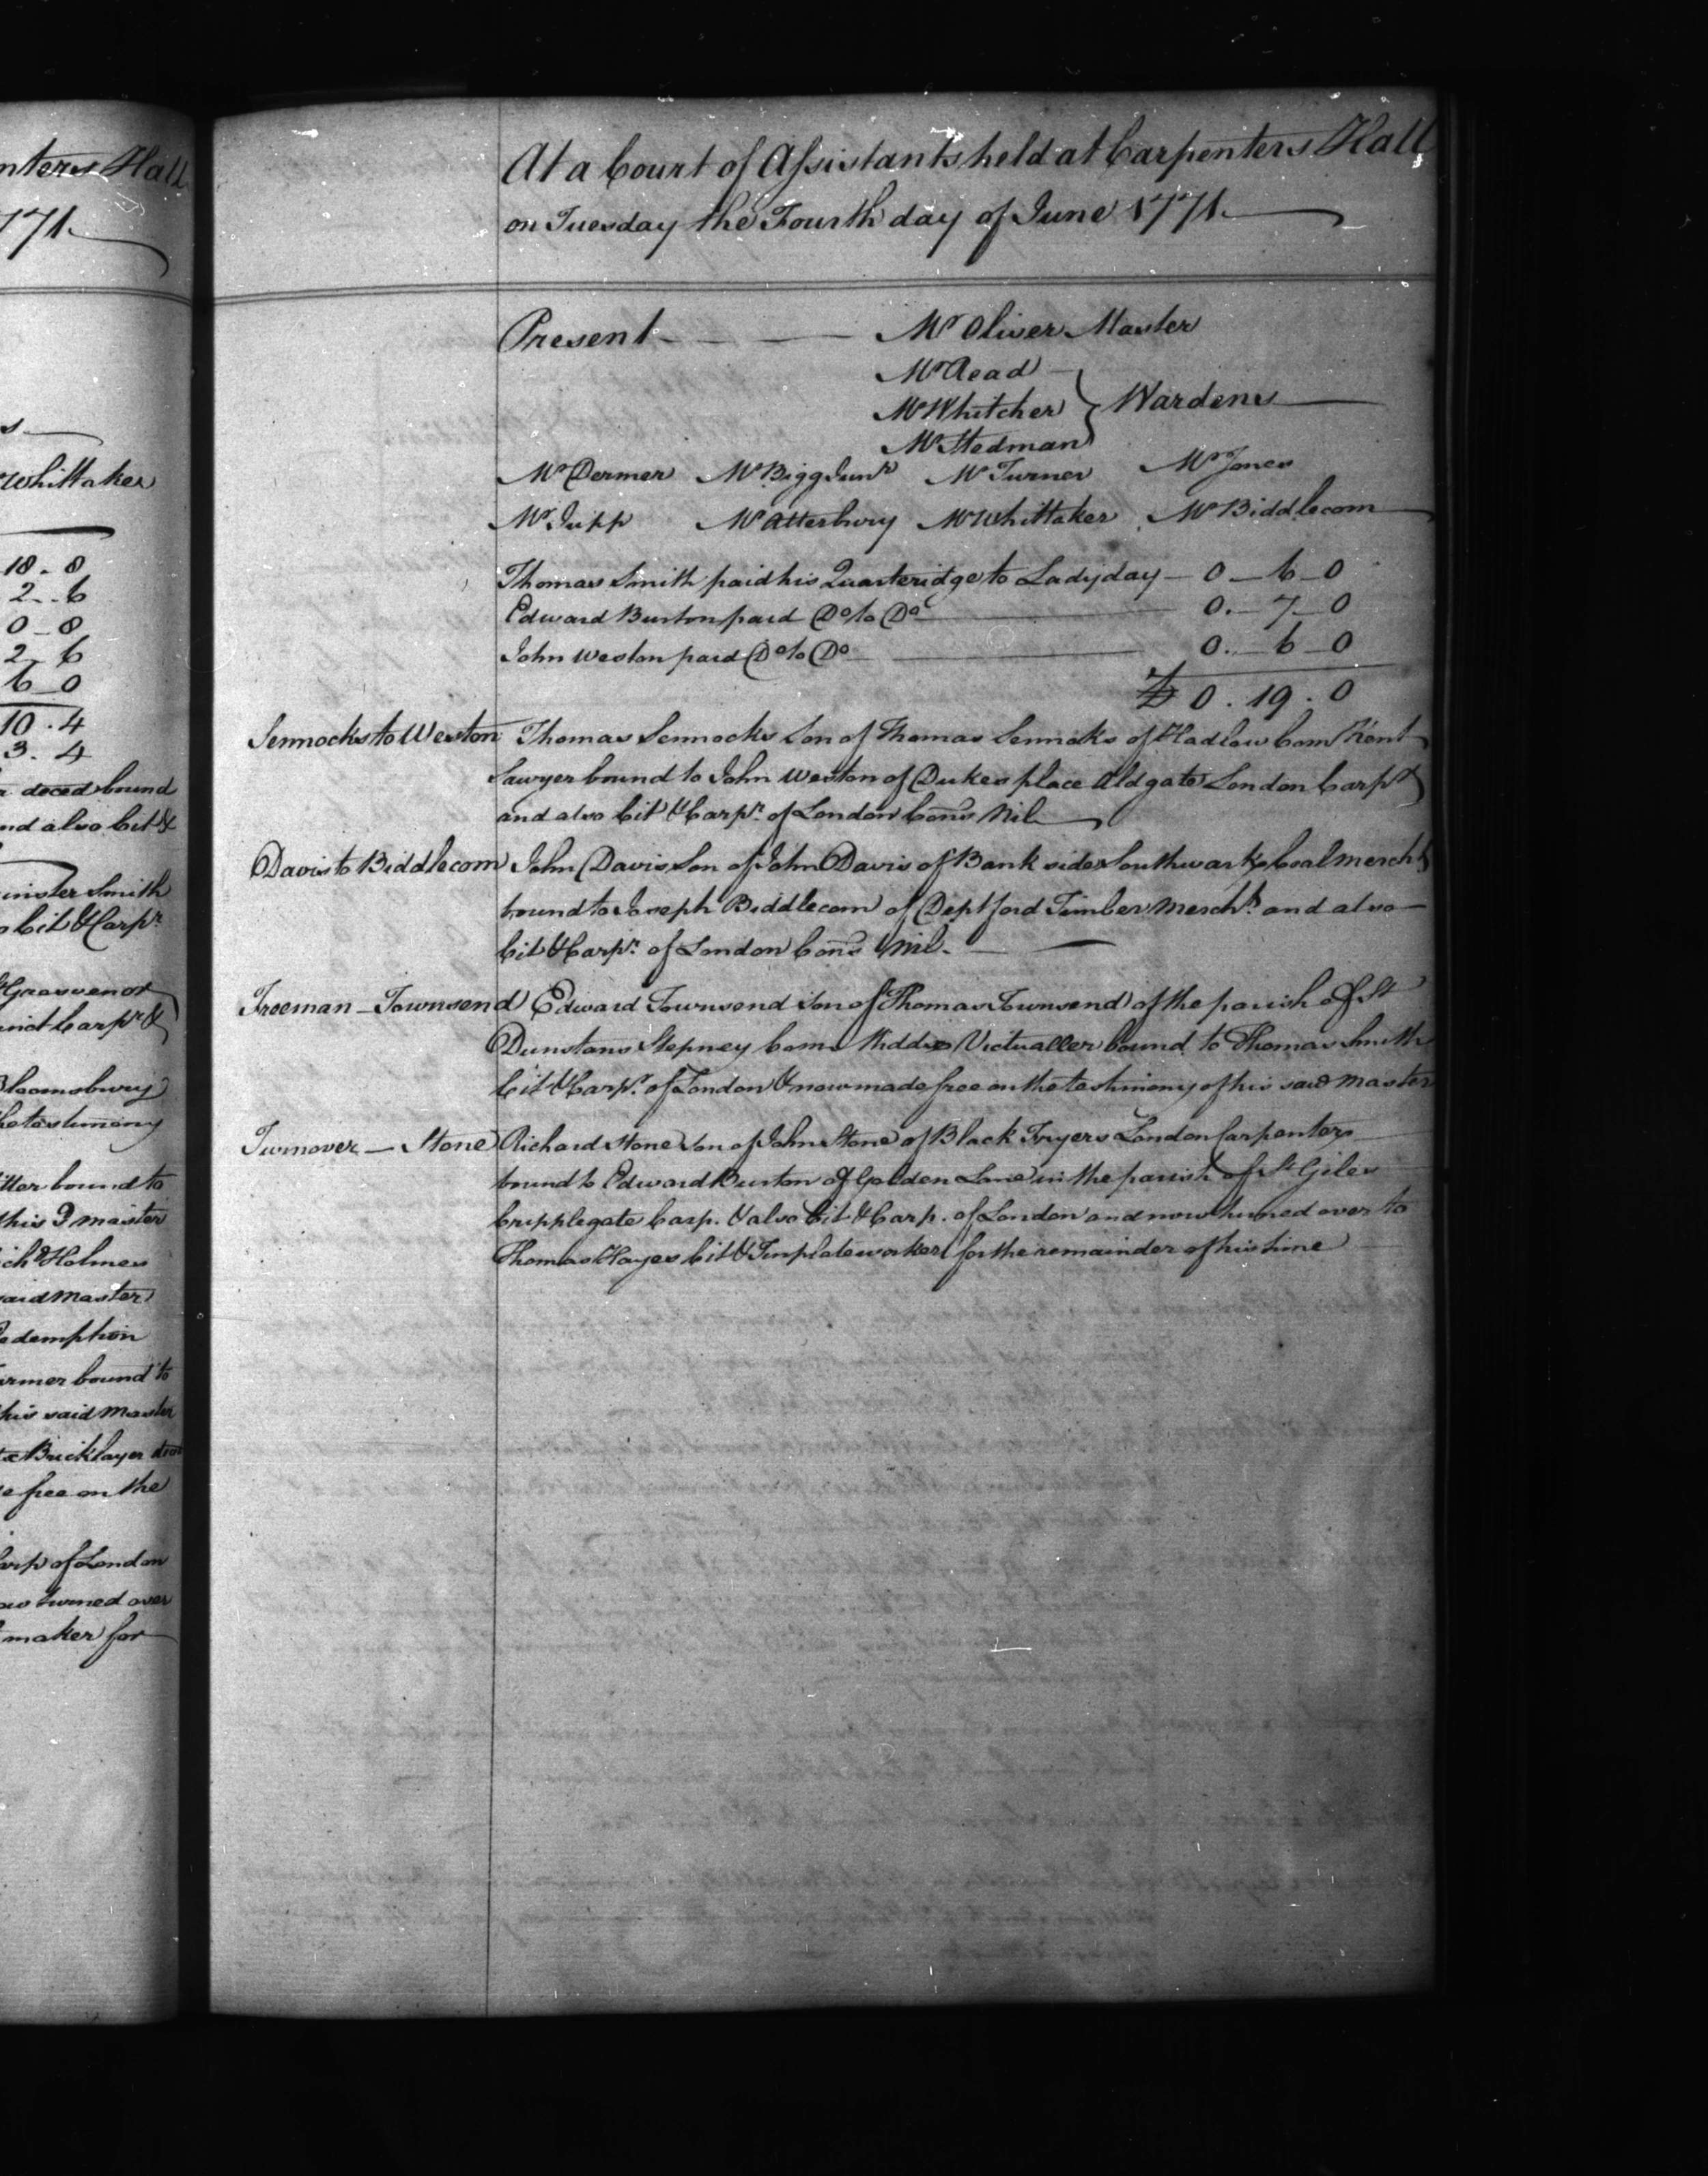 nters Hall
171
s
Whittaker
18 - 8
2 - 6
0 - 8
2 - 6
6 - 0
10 . 4
3 . 4
deced bound
nd also Cit &
minster Smith
o Cit & Carpr.
Grosvenor
Carpr &
Bloomsbury
he testimony
itter bound to
this sd master
ichd Holmes
said Master
edemption
armer bound to
his said Master
Bricklayer
e free on the
arp of London
ow turned over
maker for
At a Court of Assistants held at Carpenters Hall
on Tuesday the Fourth day of June 1771
Present - Mr Oliver Master
Mr Read
Mr Whitcher } Wardens
Mr Stedman
Mr Dermer Mr Bigg Junr Mr Turner Mr Jones
Mr Jupp Mr Atterbury Mr Whittaker Mr Biddlecom
Thomas Smith paid his Quarteridge to Ladyday - 0 - 6 - 0
Edward Burton paid Do to Do 0 - 7 - 0
John Weston paid Do to Do 0 - 6 - 0
£ 0 . 19 . 0
Sennocks to Weston Thomas Sennocks Son of Thomas Sennoks of Hadlow Com Kent
Sawyer bound to John Weston of Dukes place Aldgate London Carpr
and also Cit & Carpr. of London Cons Nil
Davis to Biddlecom John Davis Son of John Davis of Bank side Southwark Coal Mercht
bound to Joseph Biddlecom of Deptford Timber Mercht and also
Cit & Carpr. of London Cons Nil
Freeman - Townsend Edward Townsend Son of Thomas Townsend of the parish of St
Dunstans Stepney Com Middx Victualler bound to Thomas Smith
Cit & Carpr. of London & now made free on the testimony of his said Master
Turnover - Stone Richard Stone Son of John Stone of Black Fryers London Carpenter
bound to Edward Burton of Golden Lane in the parish of St Giles
Cripplegate Carp. & also Cit & Carp. of London and now turned over to
Thomas Hayes Cit & Tinplateworker for the remainder of his time